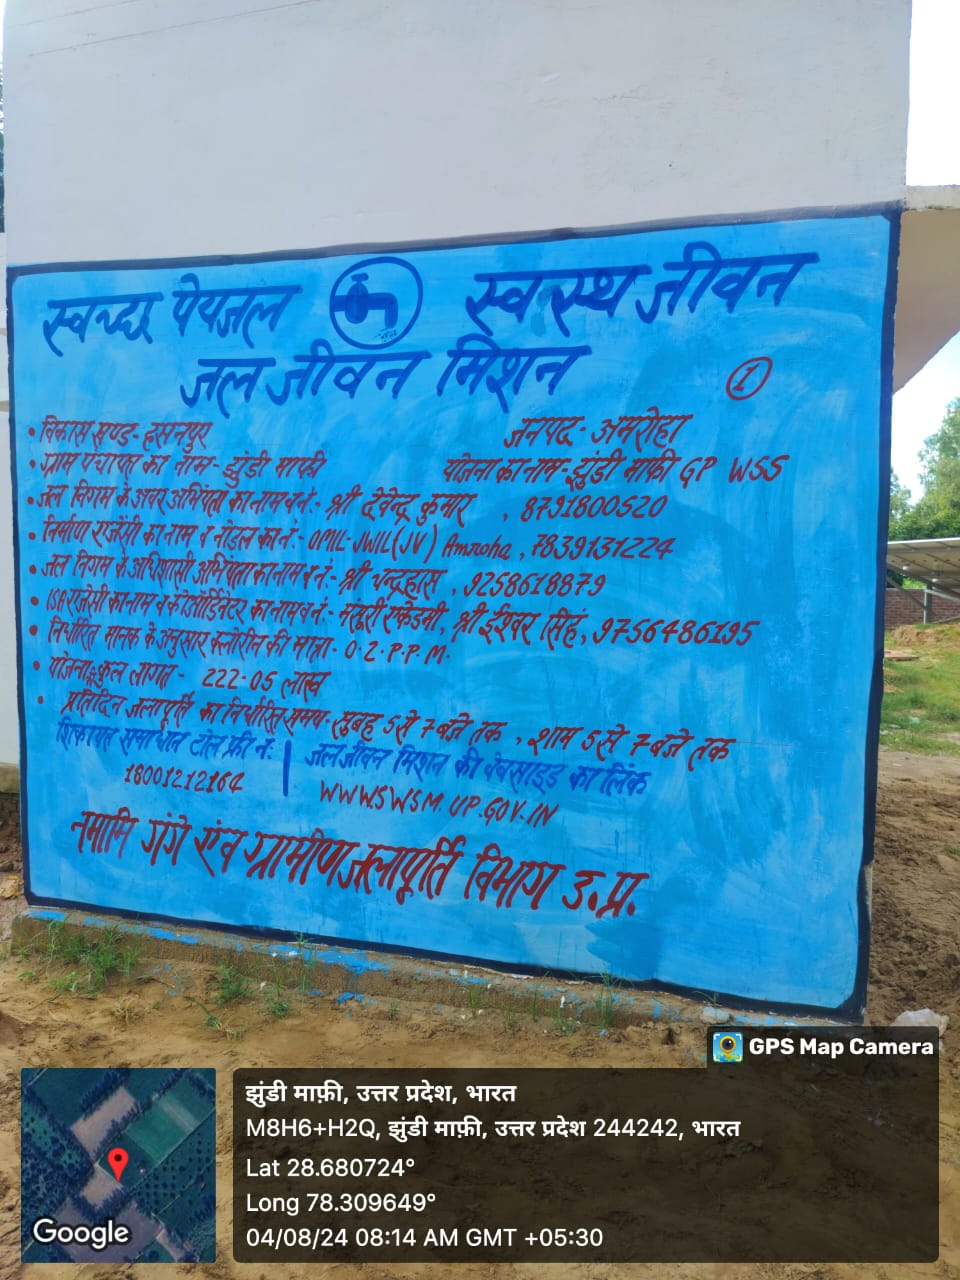 स्वच्छ पेयजल स्वस्थ जीवन
जल जीवन मिशन
1
• विकास खण्ड- हसनपुर जनपद- अमरोहा
• ग्राम पंचायत का नाम- झुंडी माफी योजना का नाम- झुंडी माफी GP WSS
• जल निगम के अवर अभियंता का नाम व नं:- श्री देवेन्द्र कुमार , 8791800520
• निर्माण एजेंसी का नाम व नोडल का नं:- OMIL-JWIL(JV) Amroha , 7839131224
• जल निगम के अधिशासी अभियंता का नाम व नं:- श्री चन्द्रहास , 9258618879
• ISA एजेंसी का नाम व कोऑर्डिनेटर का नाम व नं:- मस्तूरी एकेडमी, श्री ईश्वर सिंह, 9756486195
• निर्धारित मानक के अनुसार क्लोरीन की मात्रा- 0.2.P.P.M.
• योजना कुल लागत - 222.05 लाख
• प्रतिदिन जलापूर्ति का निर्धारित समय- सुबह 5 से 7 बजे तक , शाम 5 से 7 बजे तक
शिकायत समाधान टोल फ्री नं: | जल जीवन मिशन की वेबसाइड का लिंक
18001212164 WWWSWSM.UP.GOV.IN
नमामि गंगे एंव ग्रामीण जलापूर्ति विभाग उ.प्र.
GPS Map Camera
झुंडी माफ़ी, उत्तर प्रदेश, भारत
M8H6+H2Q, झुंडी माफ़ी, उत्तर प्रदेश 244242, भारत
Lat 28.680724°
Long 78.309649°
04/08/24 08:14 AM GMT +05:30
Google